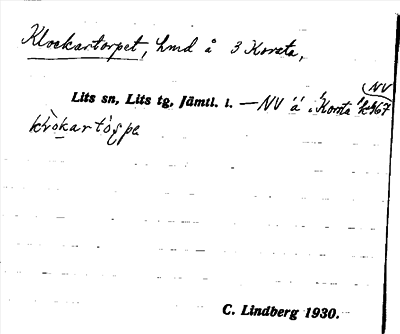 Klockartorpet, hmd å 3 Korsta,
NV
Lits sn, Lits tg, Jämtl. l. — NV å i Korsta
C. Lindberg 1930.